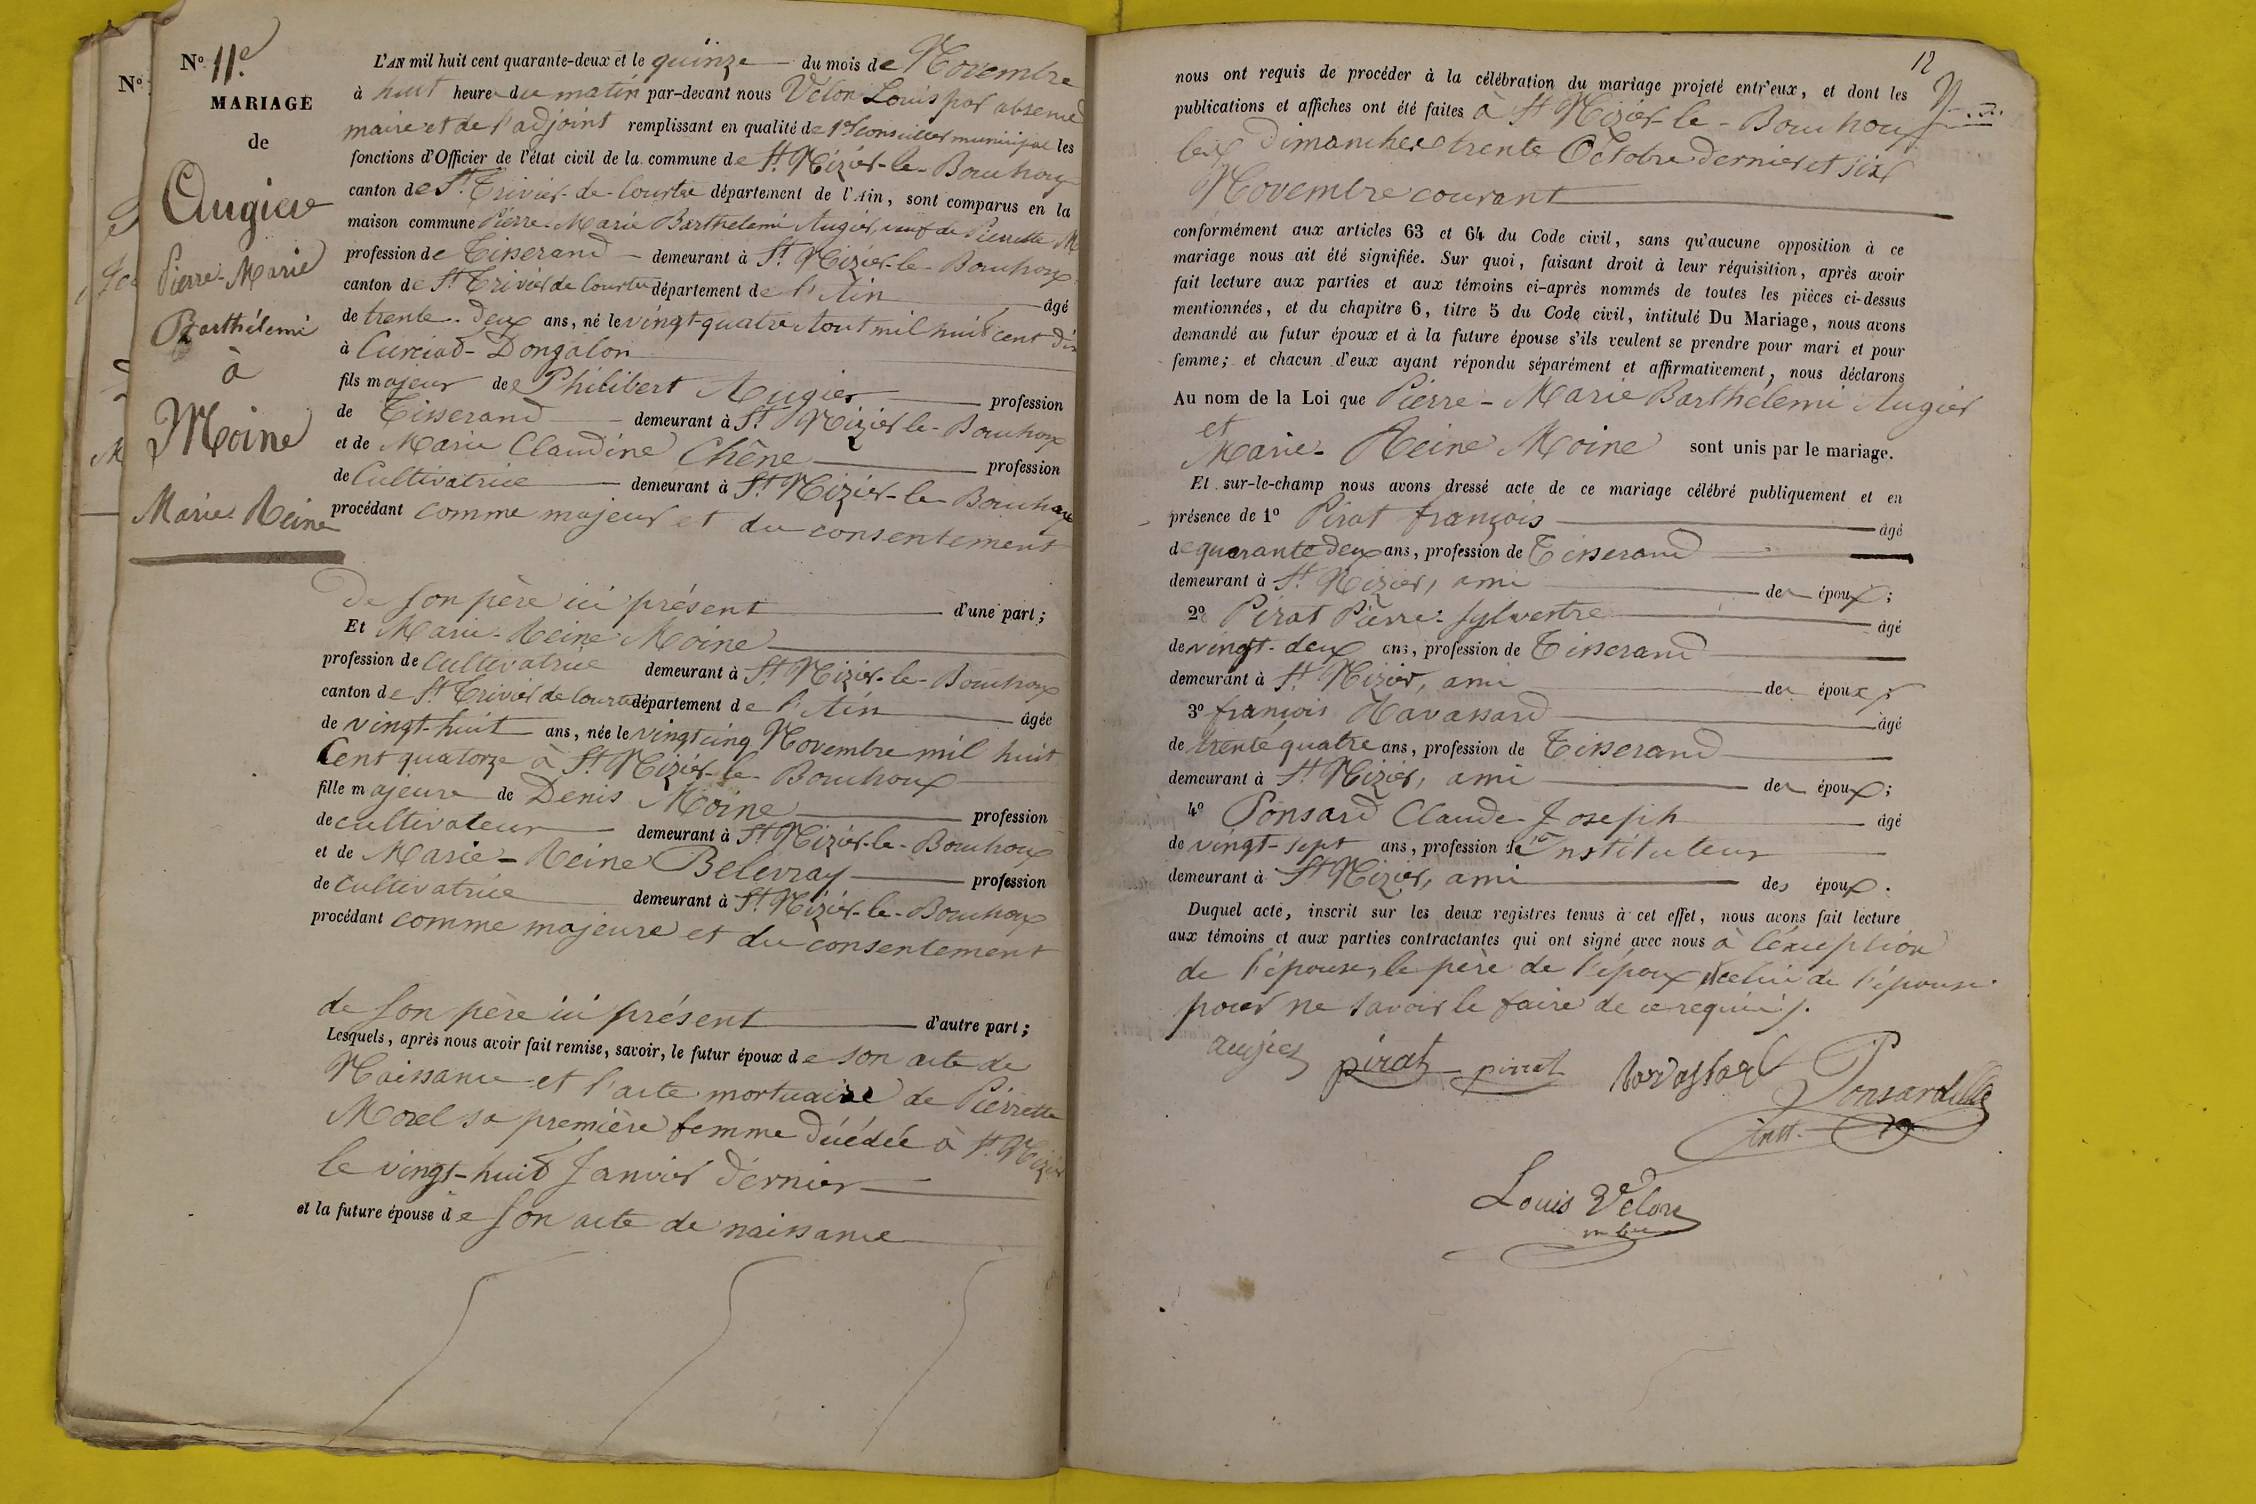 N° 11e
MARIAGE
de
Augier
Pierre-Marie
Barthélemi
à
Moine
Marie-Reine
N°
L'AN mil huit cent quarante-deux et le quinze du mois de Novembre
à huit heure du matin par-devant nous Vélon Louis par absence
maire et de l'adjoint remplissant en qualité de 1er Conseiller municipal les
fonctions d'Officier de l'état civil de la commune de St Nizier-le-Bouchoux
canton de St Trivier-de-Courtes département de l'Ain, sont comparus en la
maison commune Pierre-Marie Barthélemi Augier, veuf de Pierrette M
profession de Tisserand demeurant à St Nizier-le-Bouchoux
canton de St Trivier de Courtes département de l'Ain âgé
de trente-deux ans, né le vingt-quatre Aout mil huit cent dix
à Curciat-Dongalon
fils majeur de Philibert Augier profession
de Tisserand demeurant à St Nizier le-Bouchoux
et de Marie Claudine Chêne profession
de Cultivatrice demeurant à St Nizier-le-Bouchoux
procédant comme majeur et du consentement
de son père ici présent d'une part;
Et Marie-Reine Moine
profession de Cultivatrice demeurant à St Nizier-le-Bouchoux
canton de St Trivier de Courtes département de l'Ain âgée
de vingt-huit ans, née le vingt cinq Novembre mil huit
Cent quatorze à St Nizier-le-Bouchoux
fille majeure de Denis Moine profession
de cultivateur demeurant à St Nizier-le-Bouchoux
et de Marie-Reine Belevray profession
de Cultivatrice demeurant à St Nizier-le-Bouchoux
procédant comme majeure et du consentement
de son père ici présent d'autre part;
Lesquels, après nous avoir fait remise, savoir, le futur époux de son acte de
Naissance et l'acte mortuaire de Pierrette
Morel sa première femme décédée à St Nizier
le vingt-huit Janvier dernier
et la future épouse de son acte de naissance
12
nous ont requis de procéder à la célébration du mariage projeté entr'eux, et dont les
publications et affiches ont été faites à St Nizier-le-Bouchoux
les Dimanches trente Octobre dernier et six
Novembre courant
conformément aux articles 63 et 64 du Code civil, sans qu'aucune opposition à ce
mariage nous ait été signifiée. Sur quoi, faisant droit à leur réquisition, après avoir
fait lecture aux parties et aux témoins ci-après nommés de toutes les pièces ci-dessus
mentionnées, et du chapitre 6, titre 5 du Code civil, intitulé Du Mariage, nous avons
demandé au futur époux et à la future épouse s'ils veulent se prendre pour mari et pour
femme; et chacun d'eux ayant répondu séparément et affirmativement, nous déclarons
Au nom de la Loi que Pierre-Marie Barthélemi Augier
et
Marie-Reine Moine sont unis par le mariage.
Et sur-le-champ nous avons dressé acte de ce mariage célébré publiquement et en
présence de 1° Pirat françois âgé
de quarante deux ans, profession de Tisserand
demeurant à St Nizier, ami de époux;
2° Pirat Pierre-Sylvestre âgé
de vingt-deux ans, profession de Tisserand
demeurant à St Nizier, ami de époux;
3° françois Navassard âgé
de trente quatre ans, profession de Tisserand
demeurant à St Nizier, ami de époux;
4° Ponsard Claude-Joseph âgé
de vingt-sept ans, profession de Instituteur
demeurant à St Nizier, ami des époux.
Duquel acte, inscrit sur les deux registres tenus à cet effet, nous avons fait lecture
aux témoins et aux parties contractantes qui ont signé avec nous à l'éxception
de l'épouse, le père de l'époux, celui de l'épouse
pour ne savoir le faire de ce requis.
augier pirat pirrat navassard Ponsard
Inst.
Louis Vélon